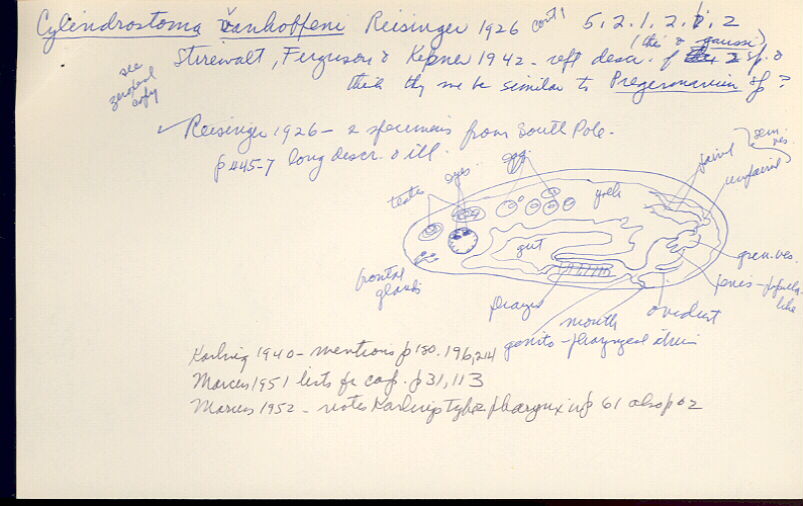 Cylindrostoma vanhoffeni Reisinger 1926 cont'd 5.2.1.2.1.2
(this & gaussi)
Steirewalt, Ferguson & Kepner 1942 - reft descr. of 2 sp. &
think they me be similar to Pregermarium sp?
see
zeroxed
copy
✓ Reisinger 1926 - 2 specimens from South Pole.
p 445-7 long descr. & ill.
testes
eyes
egg
yolk
paired
unpaired
sem.
ves.
gut
gran. ves.
penis - papilla-
like
frontal
glands
pharynx
mouth
oviduct
genito-pharyngeal atrium
Karling 1940 - mentions p 180. 196, 214
Marcus 1951 lists fr cap. p 31, 113
Marcus 1952 - notes Karling's type pharynx in p 61 also p 62